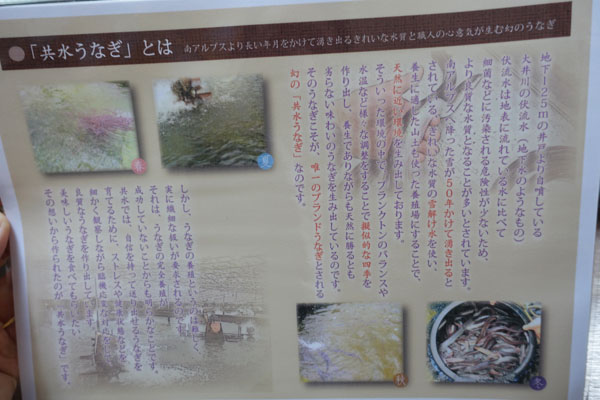 「共水うなぎ」とは
南アルプスより長い年月をかけて湧き出るきれいな水質と職人の心意気が生む幻のうなぎ
地下125mの井戸より自噴している
大井川の伏流水（地下水のようなもの）
伏流水は地表に流れている水に比べて
細菌などに汚染される危険性が少ないため、
より良質な水質となることが多いとされています。
南アルプスへ降った雪が50年かけて湧き出ると
されている、きれいな水質の雪解け水を使い、
養生に適した山土も使った養殖場にすることで、
天然に近い環境を生み出しております。
そういった環境の中で、プランクトンのバランスや
水温など様々な調整をすることで擬似的な四季を
作り出し、養生でありながらも天然に勝るとも
劣らない味わいのうなぎを生み出しているのです。
そのうなぎこそが、唯一のブランドうなぎとされる
幻の「共水うなぎ」なのです。
しかし、うなぎの養殖というのは難しく、
実に繊細な扱いが要求されるのです。
それは、うなぎの完全養殖が
成功していないことからも明らかなことです。
共水では、自信を持って送り出せるうなぎを
育てるために、ストレスや健康状態などを
細かく観察しながら臨機応変な対応を
良質なうなぎを作り出しています。
美味しいうなぎを食べてもらいたい
その想いから作られたのが、「共水うなぎ」です。
春
夏
秋
冬